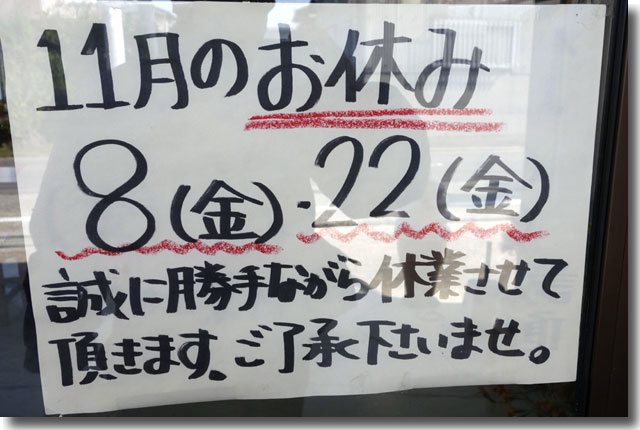 11月のお休み
8(金)・22(金)
誠に勝手ながら休業させて
頂きます、ご了承下さいませ。